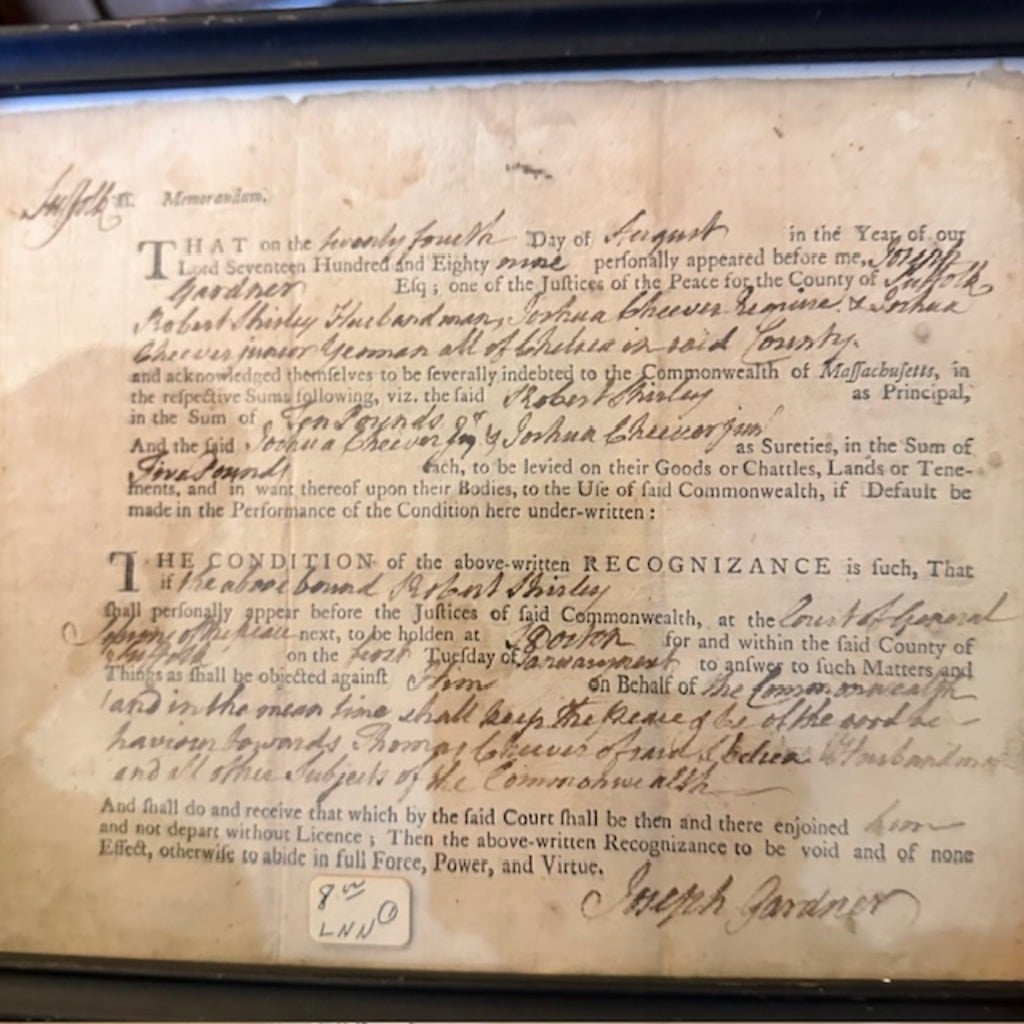 Suffolk ss. Memorandum.
THAT on the twenty fourth Day of August in the Year of our
Lord Seventeen Hundred and Eighty nine personally appeared before me, Joseph
Gardner Esq; one of the Justices of the Peace for the County of Suffolk
Robert Shirley Husbandman, Joshua Cheever & Joshua
Cheever junior Yeoman all of Chelsea in said County.
and acknowledged themselves to be severally indebted to the Commonwealth of Massachusetts, in
the respective Sums following, viz. the said Robert Shirley as Principal,
in the Sum of Ten Pounds
And the said Joshua Cheever Esq & Joshua Cheever junr as Sureties, in the Sum of
Five Pounds each, to be levied on their Goods or Chattles, Lands or Tene-
ments, and in want thereof upon their Bodies, to the Use of said Commonwealth, if Default be
made in the Performance of the Condition here under-written:
THE CONDITION of the above-written RECOGNIZANCE is such, That
if the above bound Robert Shirley
shall personally appear before the Justices of said Commonwealth, at the Court of General
Sessions of the Peace next, to be holden at Boston for and within the said County of
Suffolk on the Tuesday of to answer to such Matters and
Things as shall be objected against him on Behalf of the Commonwealth
and in the mean time shall keep the Peace & be of the good be-
haviour towards Thomas Cheever of said Chelsea Husbandman
and all other Subjects of the Commonwealth
And shall do and receive that which by the said Court shall be then and there enjoined him
and not depart without Licence; Then the above-written Recognizance to be void and of none
Effect, otherwise to abide in full Force, Power, and Virtue.
Joseph Gardner
8.00
LNN